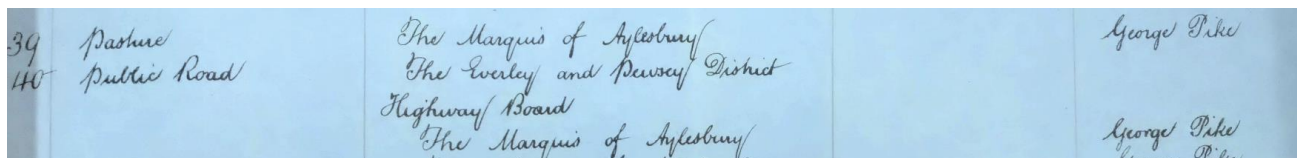 39 Pasture The Marquis of Aylesbury George Pike
40 Public Road The Everley and Pewsey District
Highway Board
The Marquis of Aylesbury George Pike
Pike